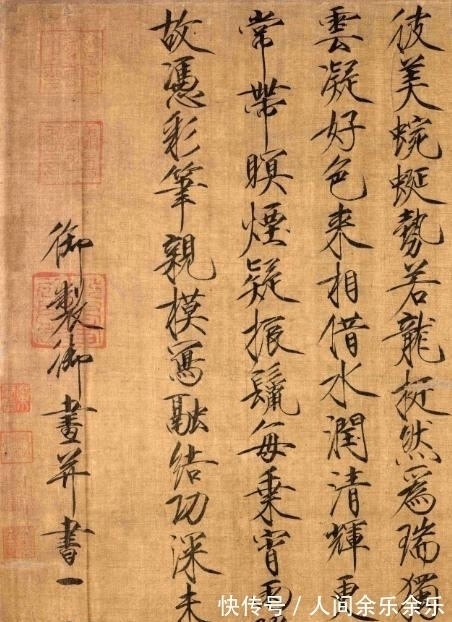 彼美蜿蜒勢若龍挺然為瑞獨
雲凝好色來相借水潤清輝更
常帶暝煙疑振鬣每乘宵雨
故憑彩筆親模寫融結功深未
御製御畫并書一
快传号 / 人间余乐余乐